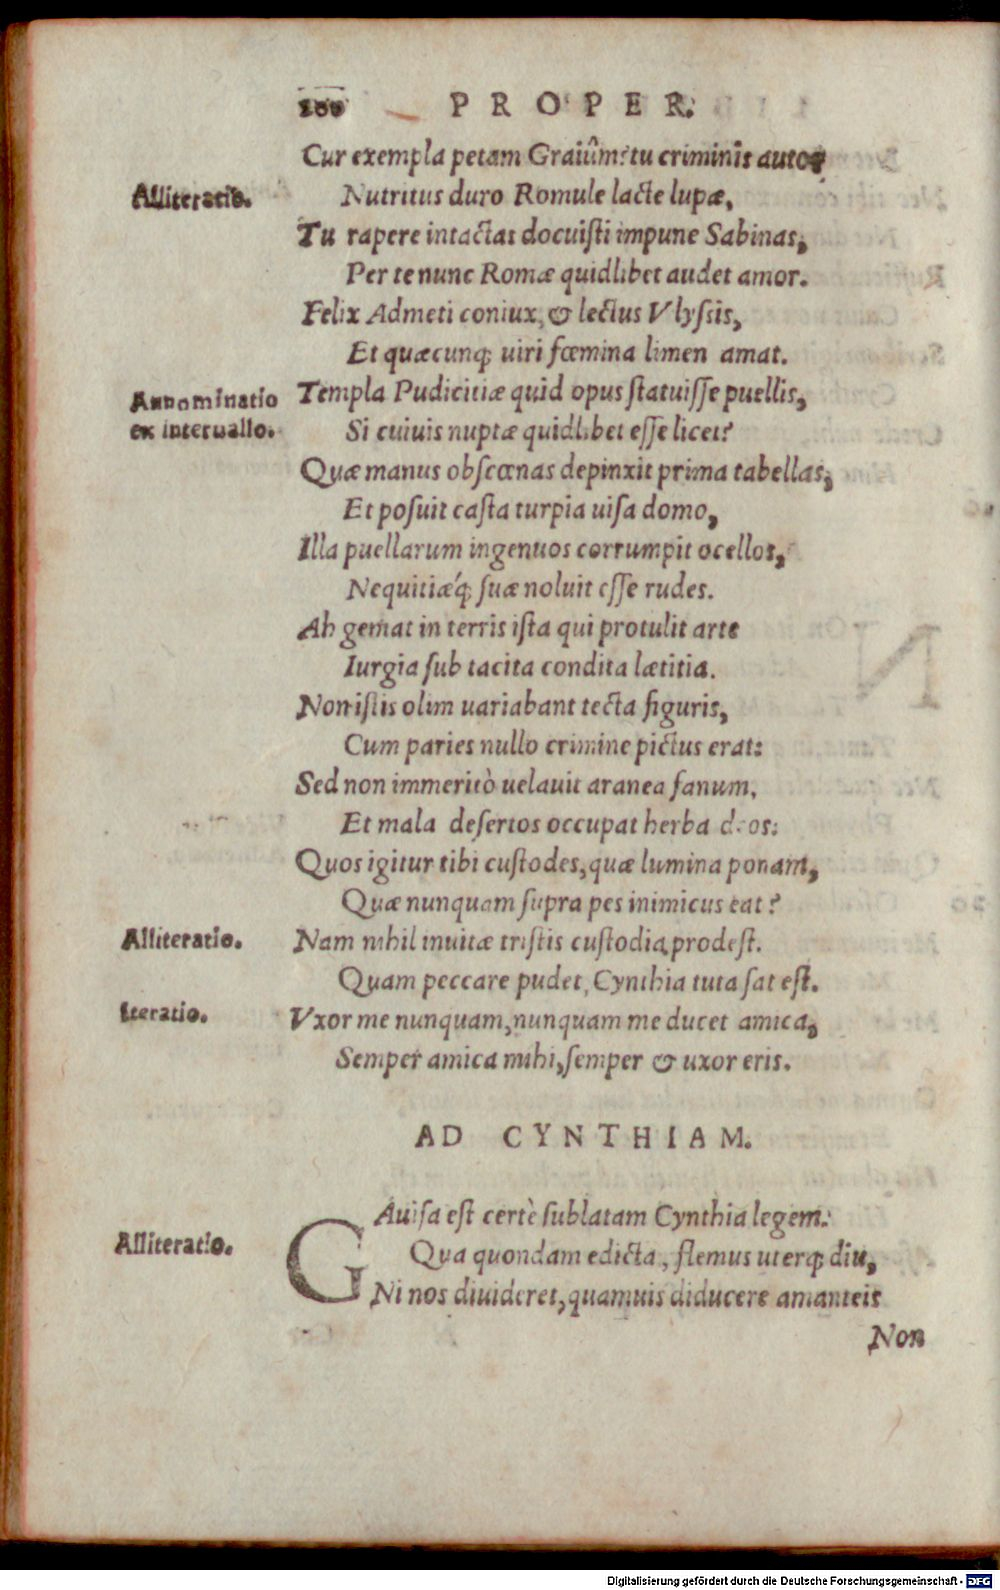 200 PROPER.
Cur exempla petam Graiûm? tu criminis autor
Alliteratio.
Nutritus duro Romule lacte lupæ,
Tu rapere intactas docuisti impune Sabinas,
Per te nunc Romæ quidlibet audet amor.
Felix Admeti coniux, & lectus Vlyssis,
Et quæcunq; uiri fœmina limen amat.
Annominatio
ex interuallo.
Templa Pudicitiæ quid opus statuisse puellis,
Si cuiuis nuptæ quidlibet esse licet?
Quæ manus obscœnas depinxit prima tabellas,
Et posuit casta turpia uisa domo,
Illa puellarum ingenuos corrumpit ocellos,
Nequitiæq́; suæ noluit esse rudes.
Ah gemat in terris ista qui protulit arte
Iurgia sub tacita condita lætitia.
Non istis olim uariabant tecta figuris,
Cum paries nullo crimine pictus erat:
Sed non immeritò uelauit aranea fanum,
Et mala desertos occupat herba deos:
Quos igitur tibi custodes, quæ lumina ponam,
Quæ nunquam supra pes inimicus eat?
Alliteratio.
Nam nihil inuitæ tristis custodia prodest.
Quam peccare pudet, Cynthia tuta sat est.
Iteratio.
Vxor me nunquam, nunquam me ducet amica,
Semper amica mihi, semper & uxor eris.
AD CYNTHIAM.
GAuisa est certè sublatam Cynthia legem:
Alliteratio.
Qua quondam edicta, flemus uterq; diu,
Ni nos diuideret, quamuis diducere amanteis
Non
Digitalisierung gefördert durch die Deutsche Forschungsgemeinschaft - DFG